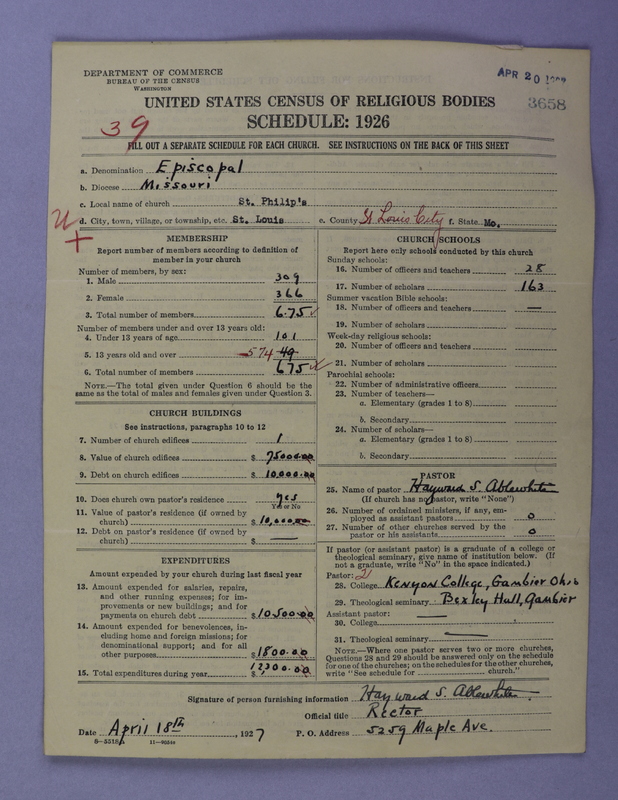 DEPARTMENT OF COMMERCE
BUREAU OF THE CENSUS
WASHINGTON
APR 20 1927
3658
UNITED STATES CENSUS OF RELIGIOUS BODIES
SCHEDULE: 1926
39
FILL OUT A SEPARATE SCHEDULE FOR EACH CHURCH. SEE INSTRUCTIONS ON THE BACK OF THIS SHEET
a. Denomination Episcopal
b. Diocese Missouri
c. Local name of church St. Philip's
d. City, town, village, or township, etc. St. Louis e. County St Louis City f. State Mo.
MEMBERSHIP
Report number of members according to definition of
member in your church
Number of members, by sex:
1. Male 309
2. Female 366
3. Total number of members 675
Number of members under and over 13 years old:
4. Under 13 years of age 101
5. 13 years old and over 574 49
6. Total number of members 675
NOTE.—The total given under Question 6 should be the
same as the total of males and females given under Question 3.
CHURCH BUILDINGS
See instructions, paragraphs 10 to 12
7. Number of church edifices 1
8. Value of church edifices $ 75000.00
9. Debt on church edifices $ 10,000.00
10. Does church own pastor's residence yes
Yes or No
11. Value of pastor's residence (if owned by
church) $ 10,000.00
12. Debt on pastor's residence (if owned by
church) $ —
EXPENDITURES
Amount expended by your church during last fiscal year
13. Amount expended for salaries, repairs,
and other running expenses; for im-
provements or new buildings; and for
payments on church debt $ 10500.00
14. Amount expended for benevolences, in-
cluding home and foreign missions; for
denominational support; and for all
other purposes $ 1800.00
15. Total expenditures during year $ 12,300.00
CHURCH SCHOOLS
Report here only schools conducted by this church
Sunday schools:
16. Number of officers and teachers 28
17. Number of scholars 163
Summer vacation Bible schools:
18. Number of officers and teachers —
19. Number of scholars
Week-day religious schools:
20. Number of officers and teachers
21. Number of scholars
Parochial schools:
22. Number of administrative officers
23. Number of teachers—
a. Elementary (grades 1 to 8)
b. Secondary
24. Number of scholars—
a. Elementary (grades 1 to 8)
b. Secondary
PASTOR
25. Name of pastor Hayward S. Ablewhite
(If church has no pastor, write "None")
26. Number of ordained ministers, if any, em-
ployed as assistant pastors 0
27. Number of other churches served by the
pastor or his assistants 0
If pastor (or assistant pastor) is a graduate of a college or
theological seminary, give name of institution below. (If
not a graduate, write "No" in the space indicated.)
Pastor:
28. College Kenyon College, Gambier Ohio
29. Theological seminary Bexley Hall, Gambier
Assistant pastor: —
30. College
31. Theological seminary —
NOTE.—Where one pastor serves two or more churches,
Questions 28 and 29 should be answered only on the schedule
for one of the churches; on the schedules for the other churches,
write "See schedule for church."
Signature of person furnishing information Hayward S. Ablewhite
Official title Rector
Date April 18th, 1927 P. O. Address 5259 Maple Ave.